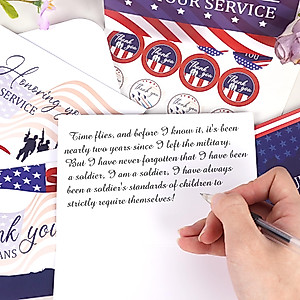 OUR SERVICE
Thank you
Thank you
Thank you
YOU
Honoring you
SERVICE
Time flies, and before I know it, it's been
nearly two years since I left the military.
But I have never forgotten that I have been
a soldier, I am a soldier, I have always
been a soldier's standards of children to
strictly require themselves!
ank you
ANS